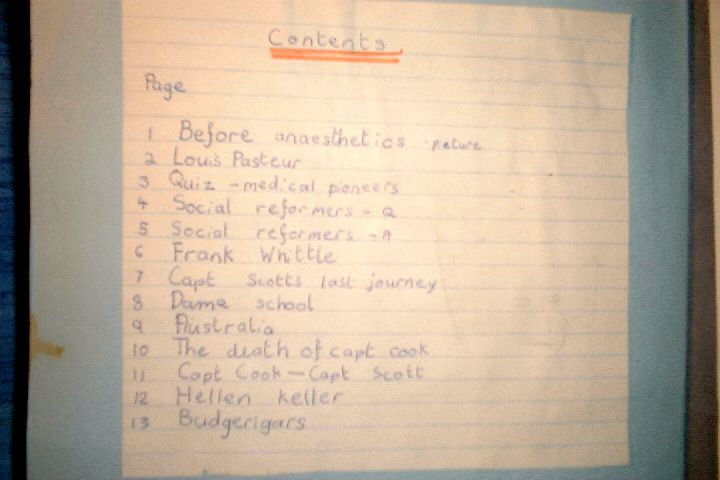 Contents
Page
1 Before anaesthetics - picture
2 Louis Pasteur
3 Quiz - medical pioneers
4 Social reformers - Q
5 Social reformers - A
6 Frank Whittle
7 Capt Scotts last journey
8 Dame school
9 Australia
10 The death of capt cook
11 Capt Cook - Capt Scott
12 Hellen keller
13 Budgerigars